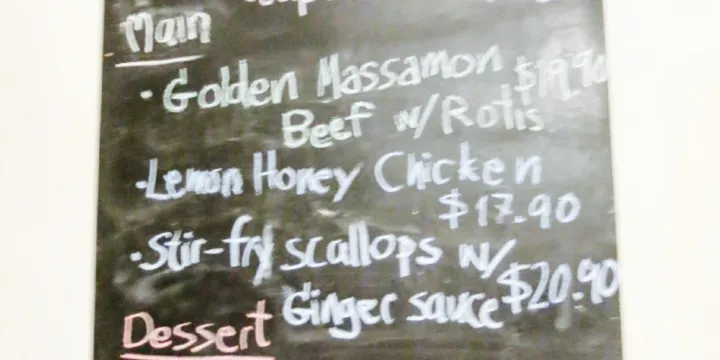 Main
· Golden Massamon $19.90
Beef w/Rotis
·Lemon Honey Chicken
$17.90
·Stir-fry scallops w/
Ginger sauce $20.90
Dessert